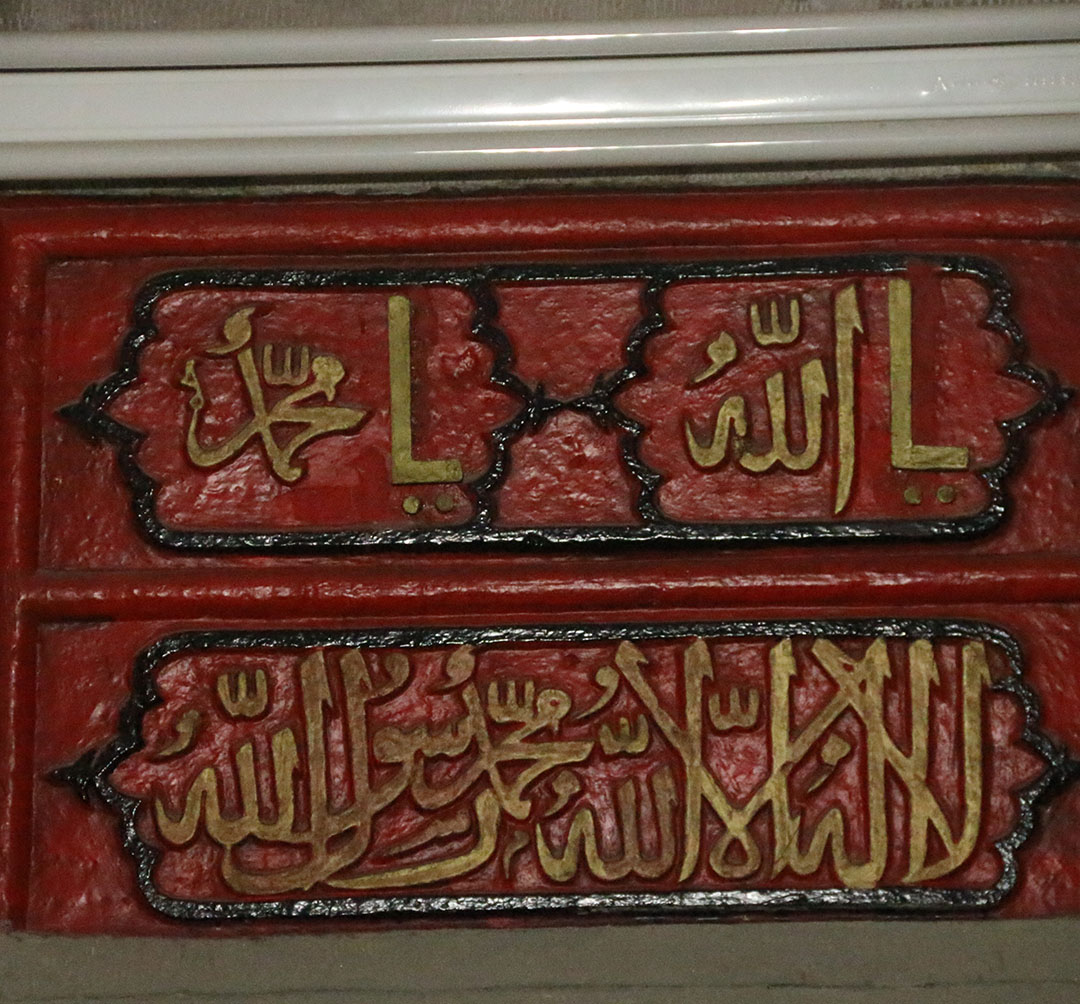 يا الله يا محمد
لا إله إلا الله محمد رسول الله